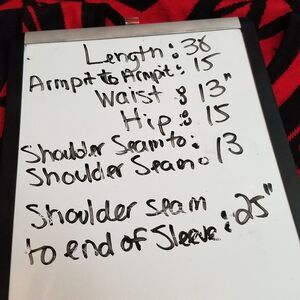 Length: 38
Armpit to Armpit: 15
Waist: 13"
Hip: 15
Shoulder Seam to:
Shoulder Seam: 13
Shoulder seam
to end of Sleeve: 25"